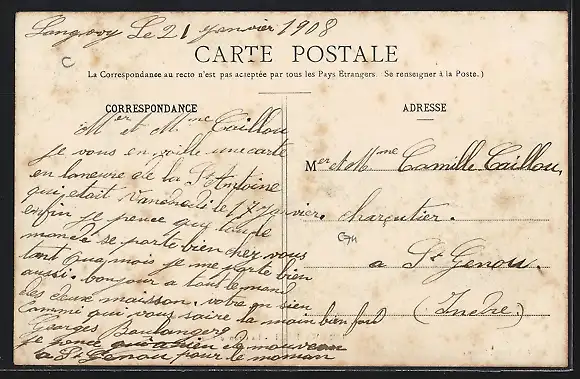 Langwy Le 21 janvier 1908
CARTE POSTALE
La Correspondance au recto n'est pas acceptée par tous les Pays Etrangers. Se renseigner à la Poste.)
CORRESPONDANCE
Mer et Mme Caillou
je vous envoille une carte
en loneure de la St Antoine
qui etait Vandredi le 17 janvier.
enfin je pence quy tou le
monde se porte bien chez vous
tant qua moi je me porte bien
aussi. bonjour a tout le mond
des deux maisson. votre en sien
commi qui vous saire la main bien ford
Georges Boulanger
je pence
a St Genou pour le moman
ADRESSE
Mer et Mme Camille Caillou,
charcutier.
a St Genou.
(Indre)